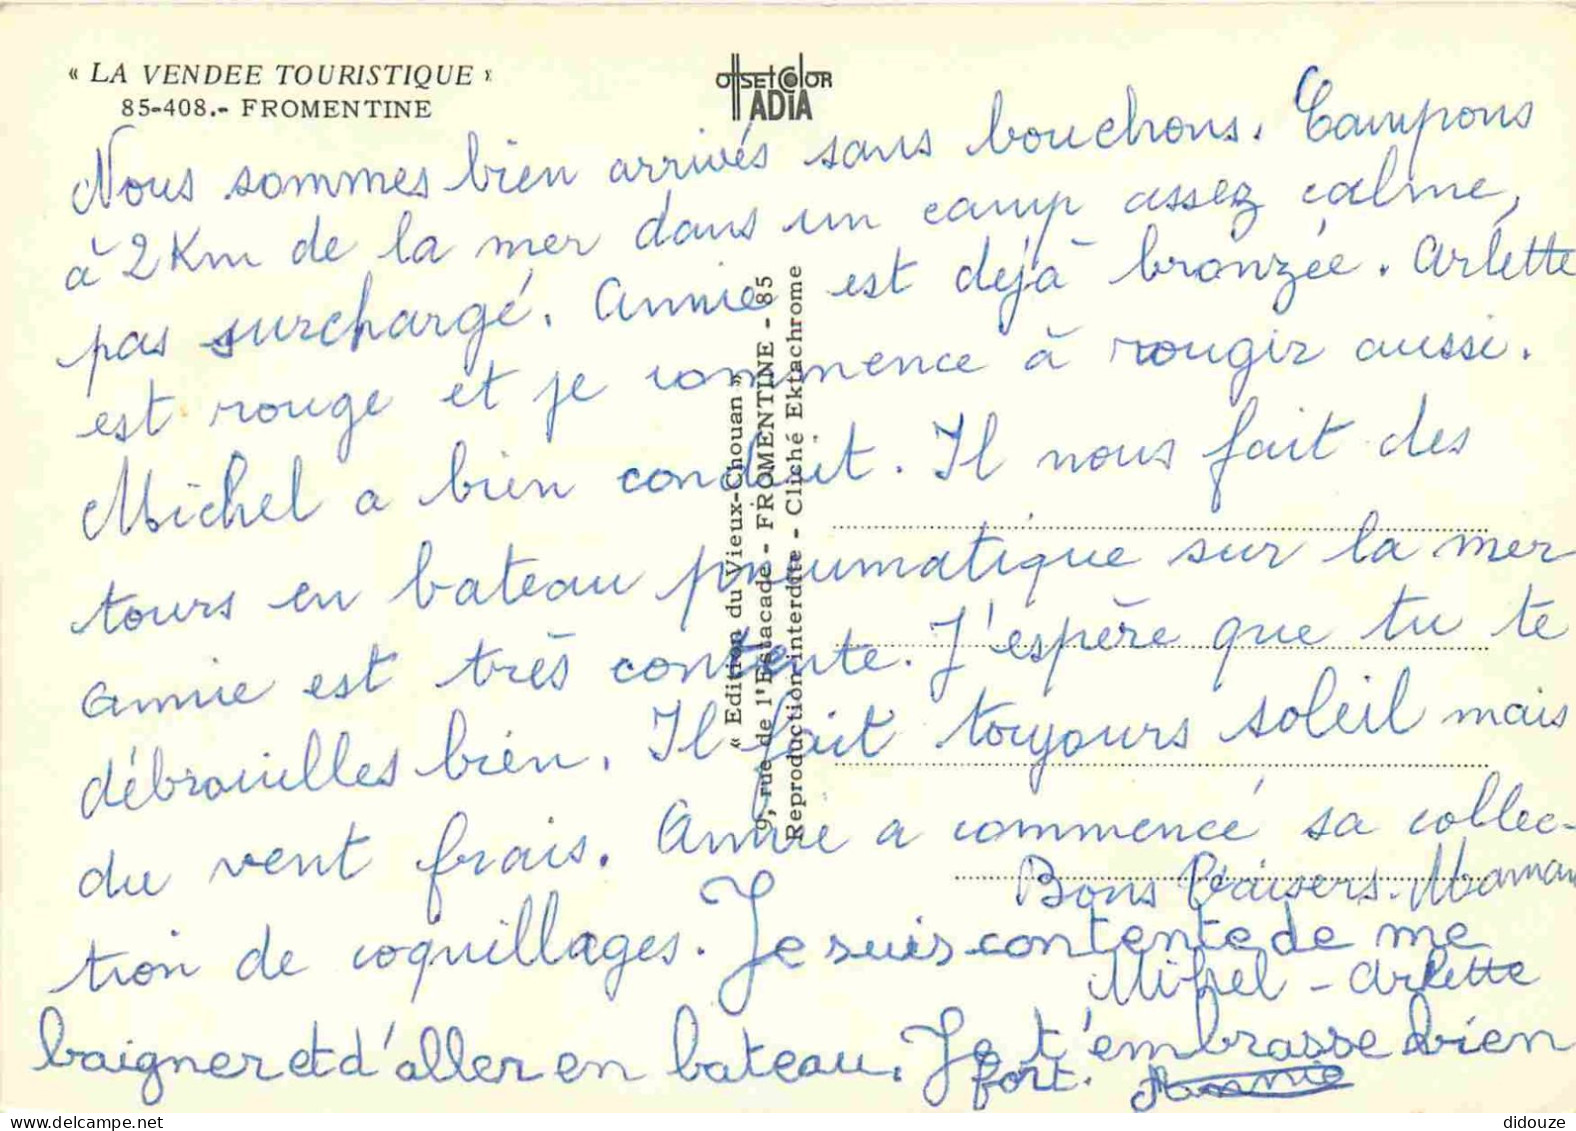 « LA VENDEE TOURISTIQUE »
85-408.- FROMENTINE
OffSEt COlOR
ADIA
Nous sommes bien arrivés sans bouchons. Campons
à 2 Km de la mer dans un camp assez calme,
pas surchargé. Annie est déjà bronzée. Arlette
est rouge et je commence à rougir aussi.
Michel a bien conduit. Il nous fait des
tours en bateau pneumatique sur la mer
Annie est très contente. J'espère que tu te
débrouilles bien. Il fait toujours soleil mais
du vent frais. Annie a commencé sa collec-
tion de coquillages. Je suis contente de me
baigner et d'aller en bateau. Je t'embrasse bien
fort. Annie
Bons Baisers. Maman
Michel - Arlette
« Edition du Vieux-Chouan »
9, rue de l'Estacade - FROMENTINE - 85
Reproduction interdite - Cliché Ektachrome
didouze